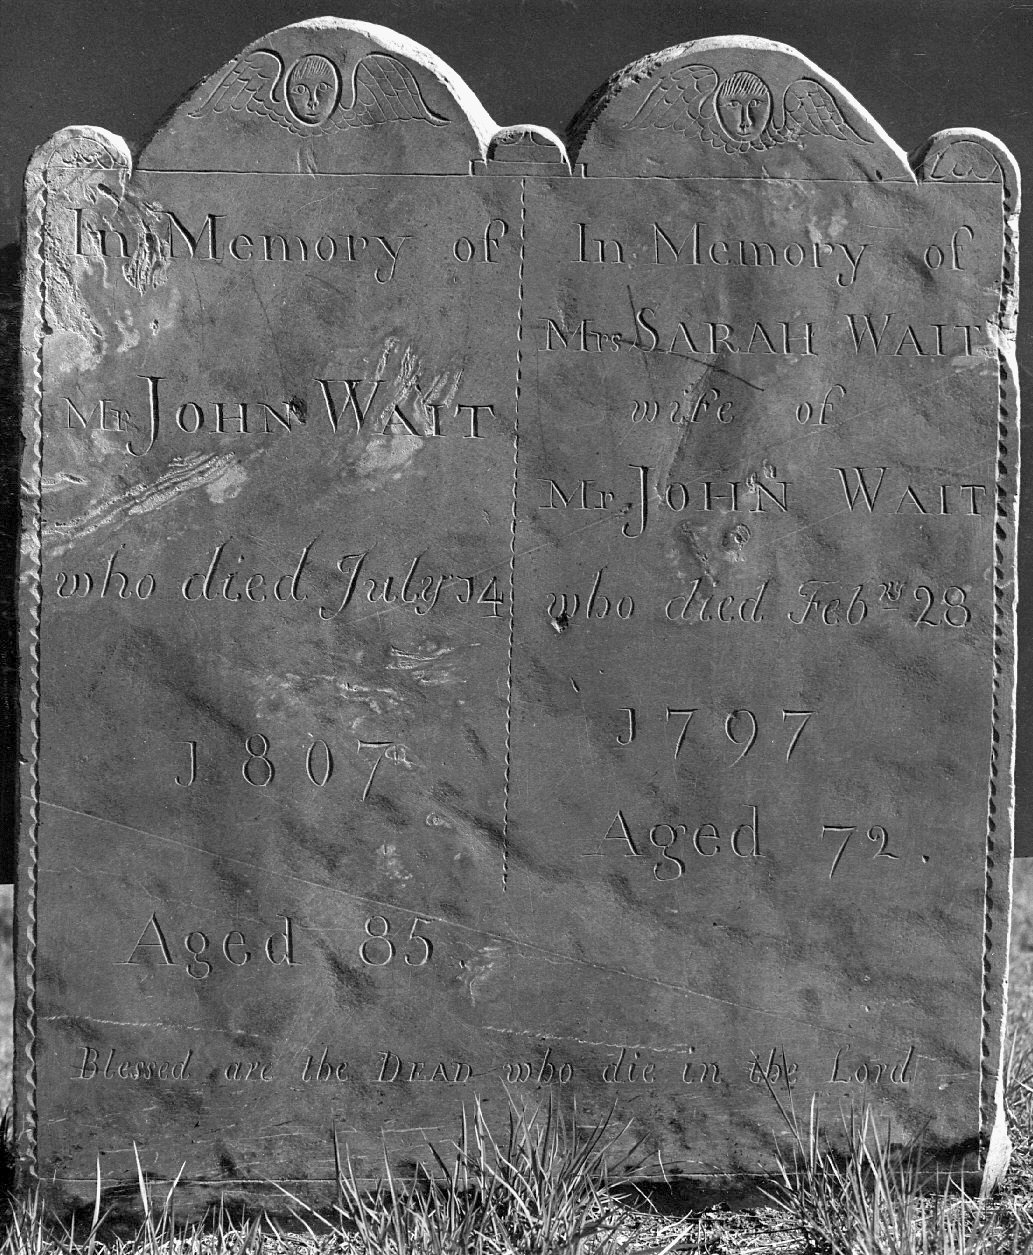 In Memory of
Mr JOHN WAIT
who died July 14
1807
Aged 85.
In Memory of
Mrs SARAH WAIT
wife of
Mr JOHN WAIT
who died Febry 28
1797
Aged 72.
Blessed are the DEAD who die in the Lord